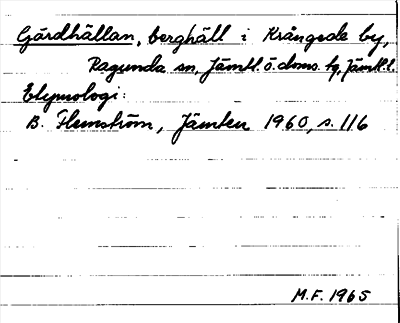 Gärdhällan, berghäll i Krångede by,
Ragunda sn, Jämtl. ö. doms. tg, Jämtl. l.
Etymologi:
B. Flemström, Jämten 1960, s. 116
M.F. 1965